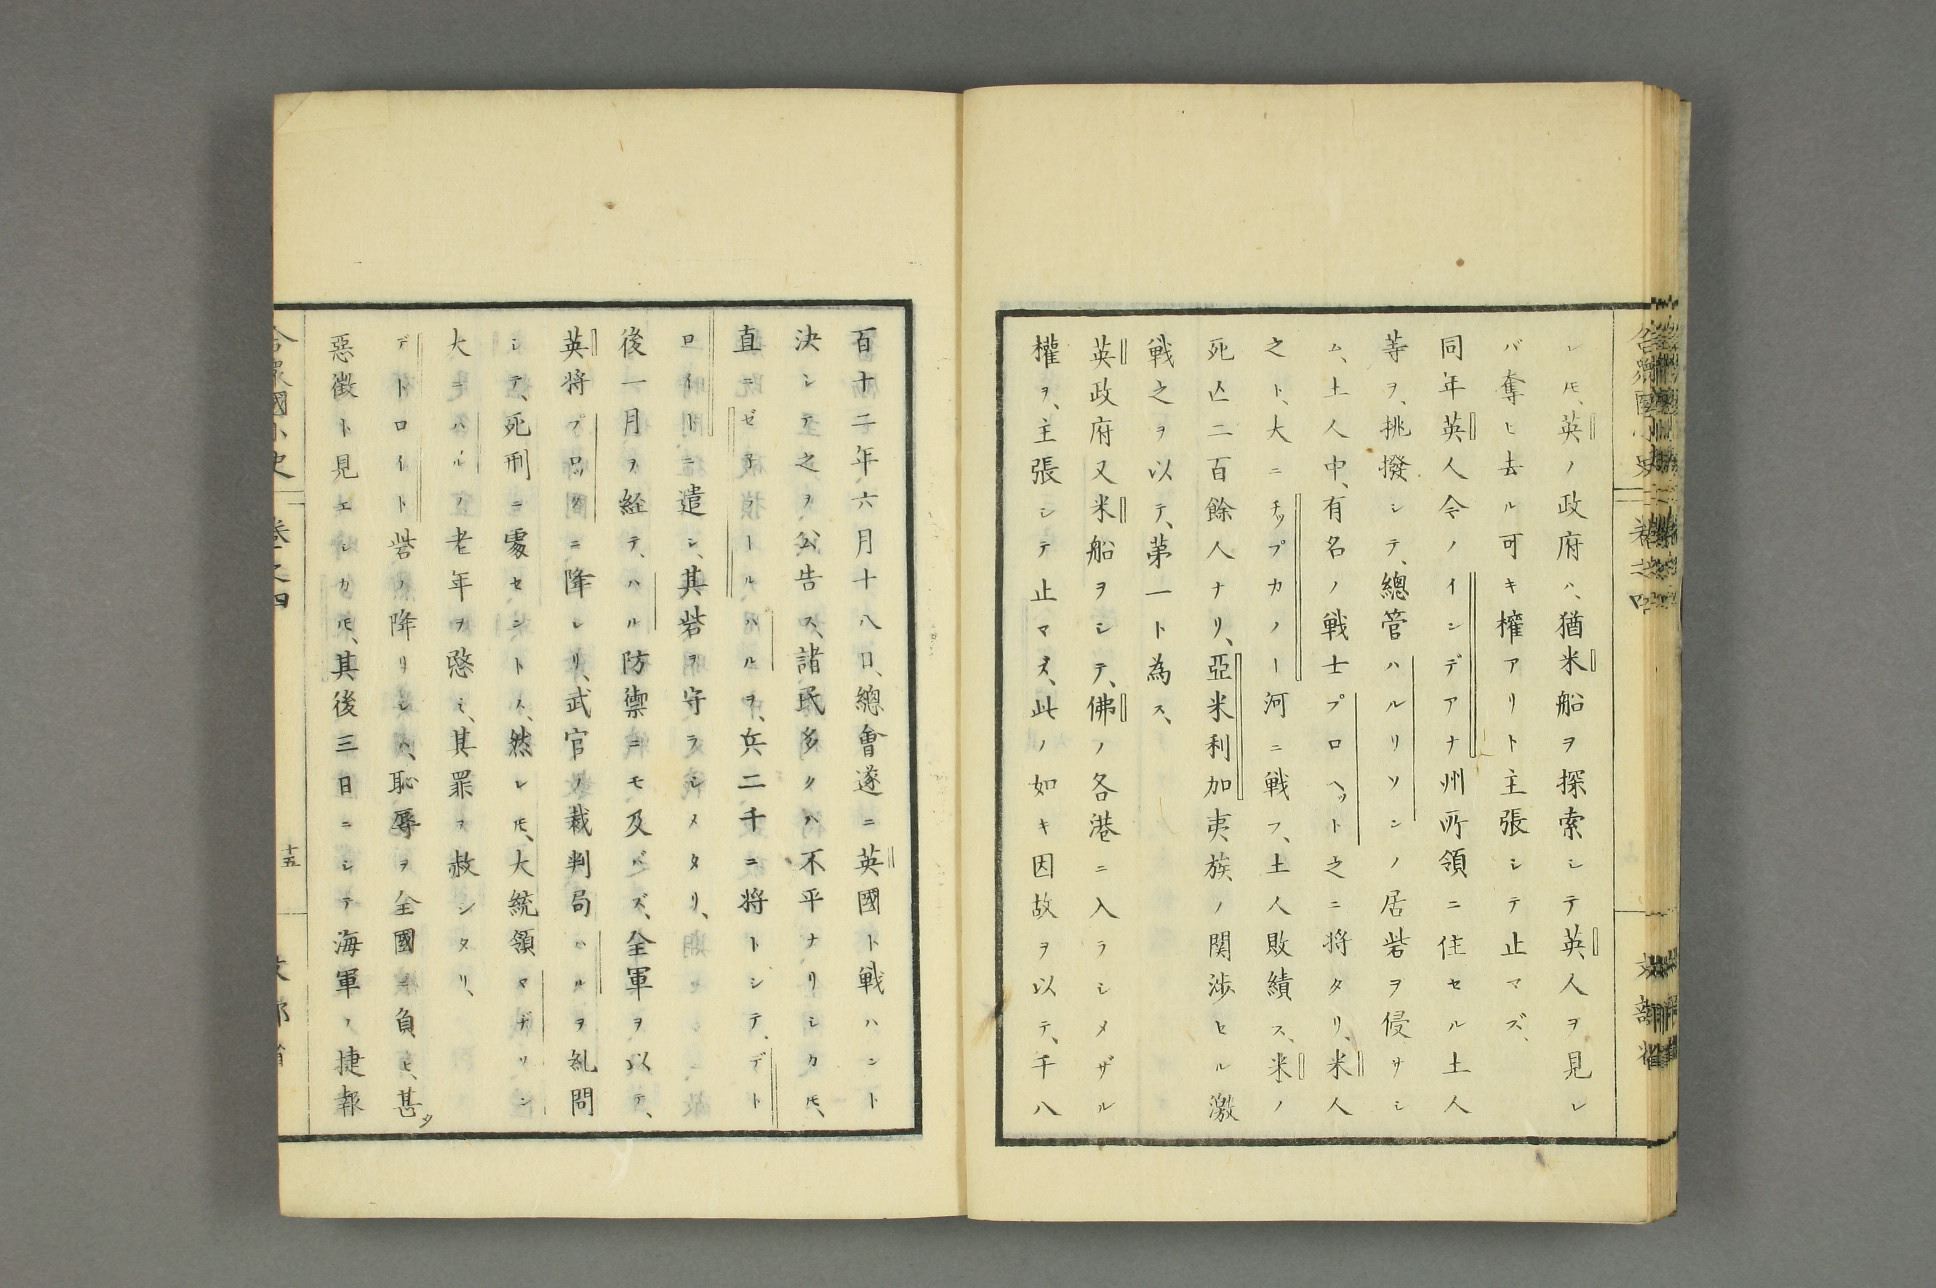 合衆國小史 二 巻之四 文部省
レ𪜈、英ノ政府ハ、猶米船ヲ探索シテ英人ヲ見レ
バ奪ヒ去ル可キ權アリト主張シテ止マズ、
同年英人今ノインデアナ州所領ニ住セル土人
等ヲ、挑撥シテ、總管ハルリソンノ居砦ヲ侵サシ
ム、土人中、有名ノ戦士プロヘット之ニ将タリ、米人
之ト、大ニチップカノー河ニ戦フ、土人敗績ス、米ノ
死亡二百餘人ナリ、亞米利加夷族ノ関渉セル激
戦之ヲ以テ、第一ト為ス、
英政府又米船ヲシテ、佛ノ各港ニ入ラシメザル
權ヲ、主張シテ止マズ、此ノ如キ因故ヲ以テ、千八
百十二年、六月十八日、總會遂ニ英國ト戦ハント
決シテ之ヲ公告ス、諸民多クハ不平ナリシカ𪜈、
直ニゼ子ラールハルヲ、兵二千ニ将トシテ、デト
ロイトニ遣シ、其砦ヲ守ラシメタリ、
後一月ヲ経テ、ハル防禦ニモ及バズ、全軍ヲ以テ、
英将ブロックニ降レリ、武官ノ裁判局ハルヲ糺問
シテ、死刑ニ處セントス、然レ𪜈、大統領マヂソン
大ニハルノ老年ヲ愍ミ、其罪ヲ赦シタリ、
デトロイト砦ノ降リシハ、恥辱ヲ全國ニ負ヒ、甚タ
惡徴ト見エシカ𪜈、其後三日ニシテ海軍ノ捷報
合衆國小史 巻之四 十五 文部省